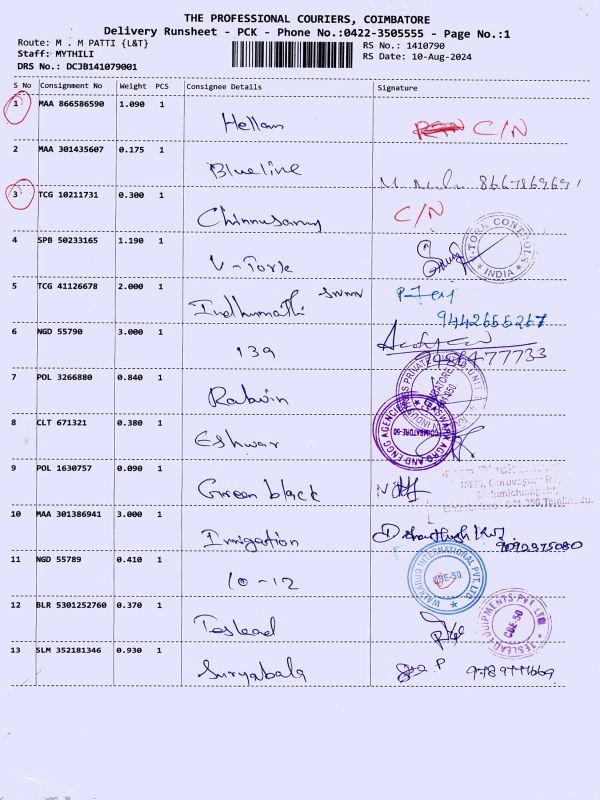 THE PROFESSIONAL COURIERS, COIMBATORE
Delivery Runsheet - PCK - Phone No.:0422-3505555 - Page No.:1
Route: M . M PATTI {L&T}
RS No.: 1410790
Staff: MYTHILI
RS Date: 10-Aug-2024
DRS No.: DCJB141079001
S No Consignment No Weight PCS Consignee Details Signature
1 MAA 866586590 1.090 1 Hellan C/N
2 MAA 301435607 0.175 1 Blueline
3 TCG 10211731 0.300 1 Chinnusamy C/N
4 SPB 50233165 1.190 1 V-Tork
V-TORK CONTROLS
INDIA
5 TCG 41126678 2.000 1 Indhumathi
9442655267
6 NGD 55790 3.000 1 139
7 POL 3266880 0.840 1 Rabwin
8 CLT 671321 0.380 1 Eshwar
ESWARA AGRO AND ENGG AGENCIES
COIMBATORE-50
9 POL 1630757 0.090 1 Green black
10 MAA 301386941 3.000 1 Irrigation
9092975080
11 NGD 55789 0.410 1 10-12
INTERNATIONAL PVT. LTD.
CBE-50
12 BLR 5301252760 0.370 1 Teslead
TESLEAD EQUIPMENTS PVT LTD
CBE-50
13 SLM 352181346 0.930 1 Suryabala